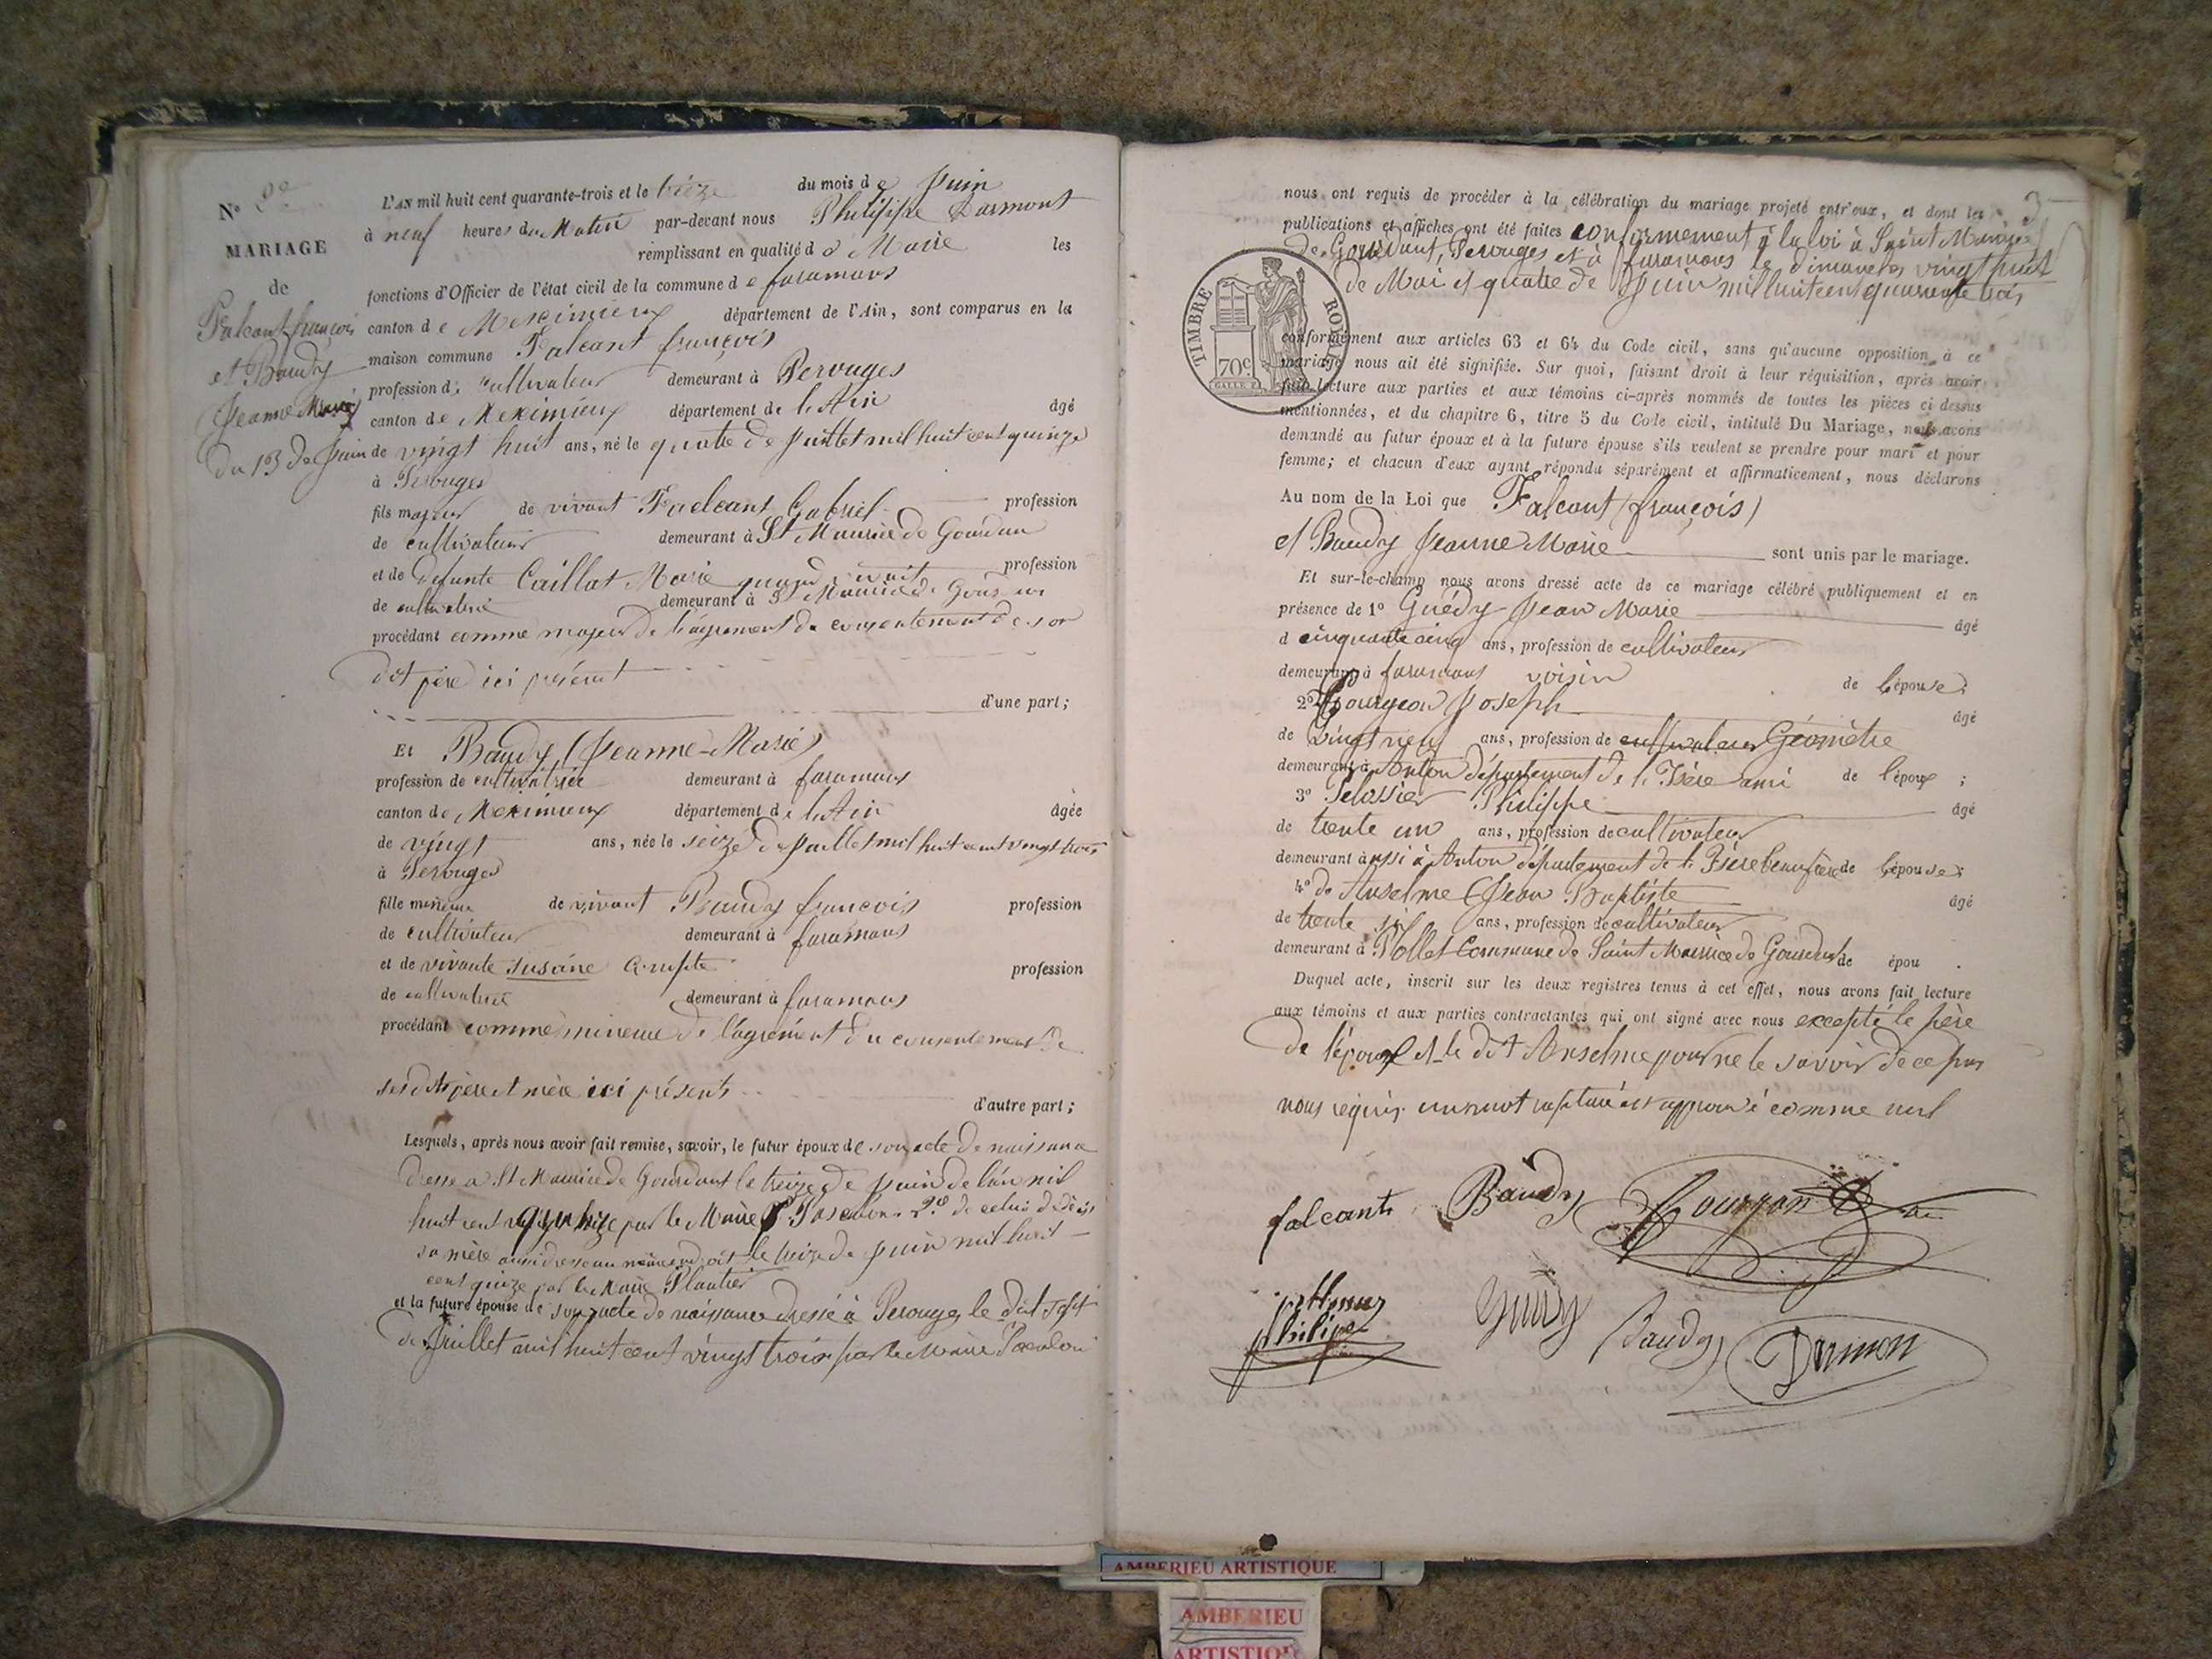 N° 2e
MARIAGE
de
Falcant françois
et Baudy
Jeanne Marie
du 13 de Juin
L'AN mil huit cent quarante-trois et le treize du mois de Juin
à neuf heures du Matin par-devant nous Philippe Darmont
remplissant en qualité de Maire les
fonctions d'Officier de l'état civil de la commune de faramans
canton de Meximieux département de l'Ain, sont comparus en la
maison commune Falcant françois
profession de cultivateur demeurant à Perouges
canton de Meximieux département de l'Ain âgé
de vingt huit ans, né le quatre de Juillet mil huit cent quinze
à Perouges
fils majeur de vivant Falcant Gabriel profession
de cultivateur demeurant à St Maurice de Gourdan
et de defunte Caillat Marie quand vivait profession
de cultivatrice demeurant à St Maurice de Gourdan
procédant comme majeur de l'agrement du consentement de son
dit père ici présent
d'une part;
Et Baudy (Jeanne-Marie)
profession de cultivatrice demeurant à faramans
canton de Meximieux département de l'Ain âgée
de vingt ans, née le seize de Juillet mil huit cent vingt trois
à Perouges
fille mineure de vivant Baudy francois profession
de cultivateur demeurant à faramans
et de vivante Susane Compte profession
de cultivatrice demeurant à faramans
procédant comme mineure de l'agrément du consentement de
ses dits père et mère ici présents
d'autre part;
Lesquels, après nous avoir fait remise, savoir, le futur époux de son acte de naissance
dressé a St Maurice de Gourdant le treize de Juin de l'an mil
huit cent quinze par le Maire 2° de celui de décès
sa mère aussi dressé au même endroit le treize de Juin mil huit
cent quinze par le Maire Plantier
et la future épouse de son acte de naissance dressé à Perouges le dix sept
de Juillet mil huit cent vingt trois par le Maire
3
nous ont requis de procéder à la célébration du mariage projeté entr'eux, et dont les
publications et affiches ont été faites conformement à la loi à Saint Maurice
de Gourdant, Perouges et à faramans le dimanches vingt huit
de Mai et quatre de Juin mil huit cent quarante trois
TIMBRE ROYAL
70c
conformément aux articles 63 et 64 du Code civil, sans qu'aucune opposition à ce
mariage nous ait été signifiée. Sur quoi, faisant droit à leur réquisition, après avoir
fait lecture aux parties et aux témoins ci-après nommés de toutes les pièces ci dessus
mentionnées, et du chapitre 6, titre 5 du Code civil, intitulé Du Mariage, nous avons
demandé au futur époux et à la future épouse s'ils veulent se prendre pour mari et pour
femme; et chacun d'eux ayant répondu séparément et affirmativement, nous déclarons
Au nom de la Loi que Falcant (françois)
et Baudy Jeanne Marie sont unis par le mariage.
Et sur-le-champ nous avons dressé acte de ce mariage célébré publiquement et en
présence de 1° Guédy Jean Marie âgé
d cinquante cinq ans, profession de cultivateur
demeurant à faramans voisin de l'épouse;
2° Courgeon Joseph âgé
de vingt neuf ans, profession de cultivateur Géomètre
demeurant à Anton département de l'Isère ami de l'époux;
3° Pelossier Philippe âgé
de trente un ans, profession de cultivateur
demeurant aussi à Anton département de l'Isère beaufrère de l'épouse;
4° de Anselme (Jean Baptiste âgé
de trente six ans, profession de cultivateur
demeurant à Pollet Commune de Saint Maurice de Gourdan de épou .
Duquel acte, inscrit sur les deux registres tenus à cet effet, nous avons fait lecture
aux témoins et aux parties contractantes qui ont signé avec nous excepté le père
de l'époux et le dit Anselme pour ne le savoir de ce par
nous requis. un mot rapturé est approuvé comme nul
falcant Baudy Courjon
philipe Guédy Baudy Darmon
AMBERIEU ARTISTIQUE
AMBERIEU
ARTISTIQUE